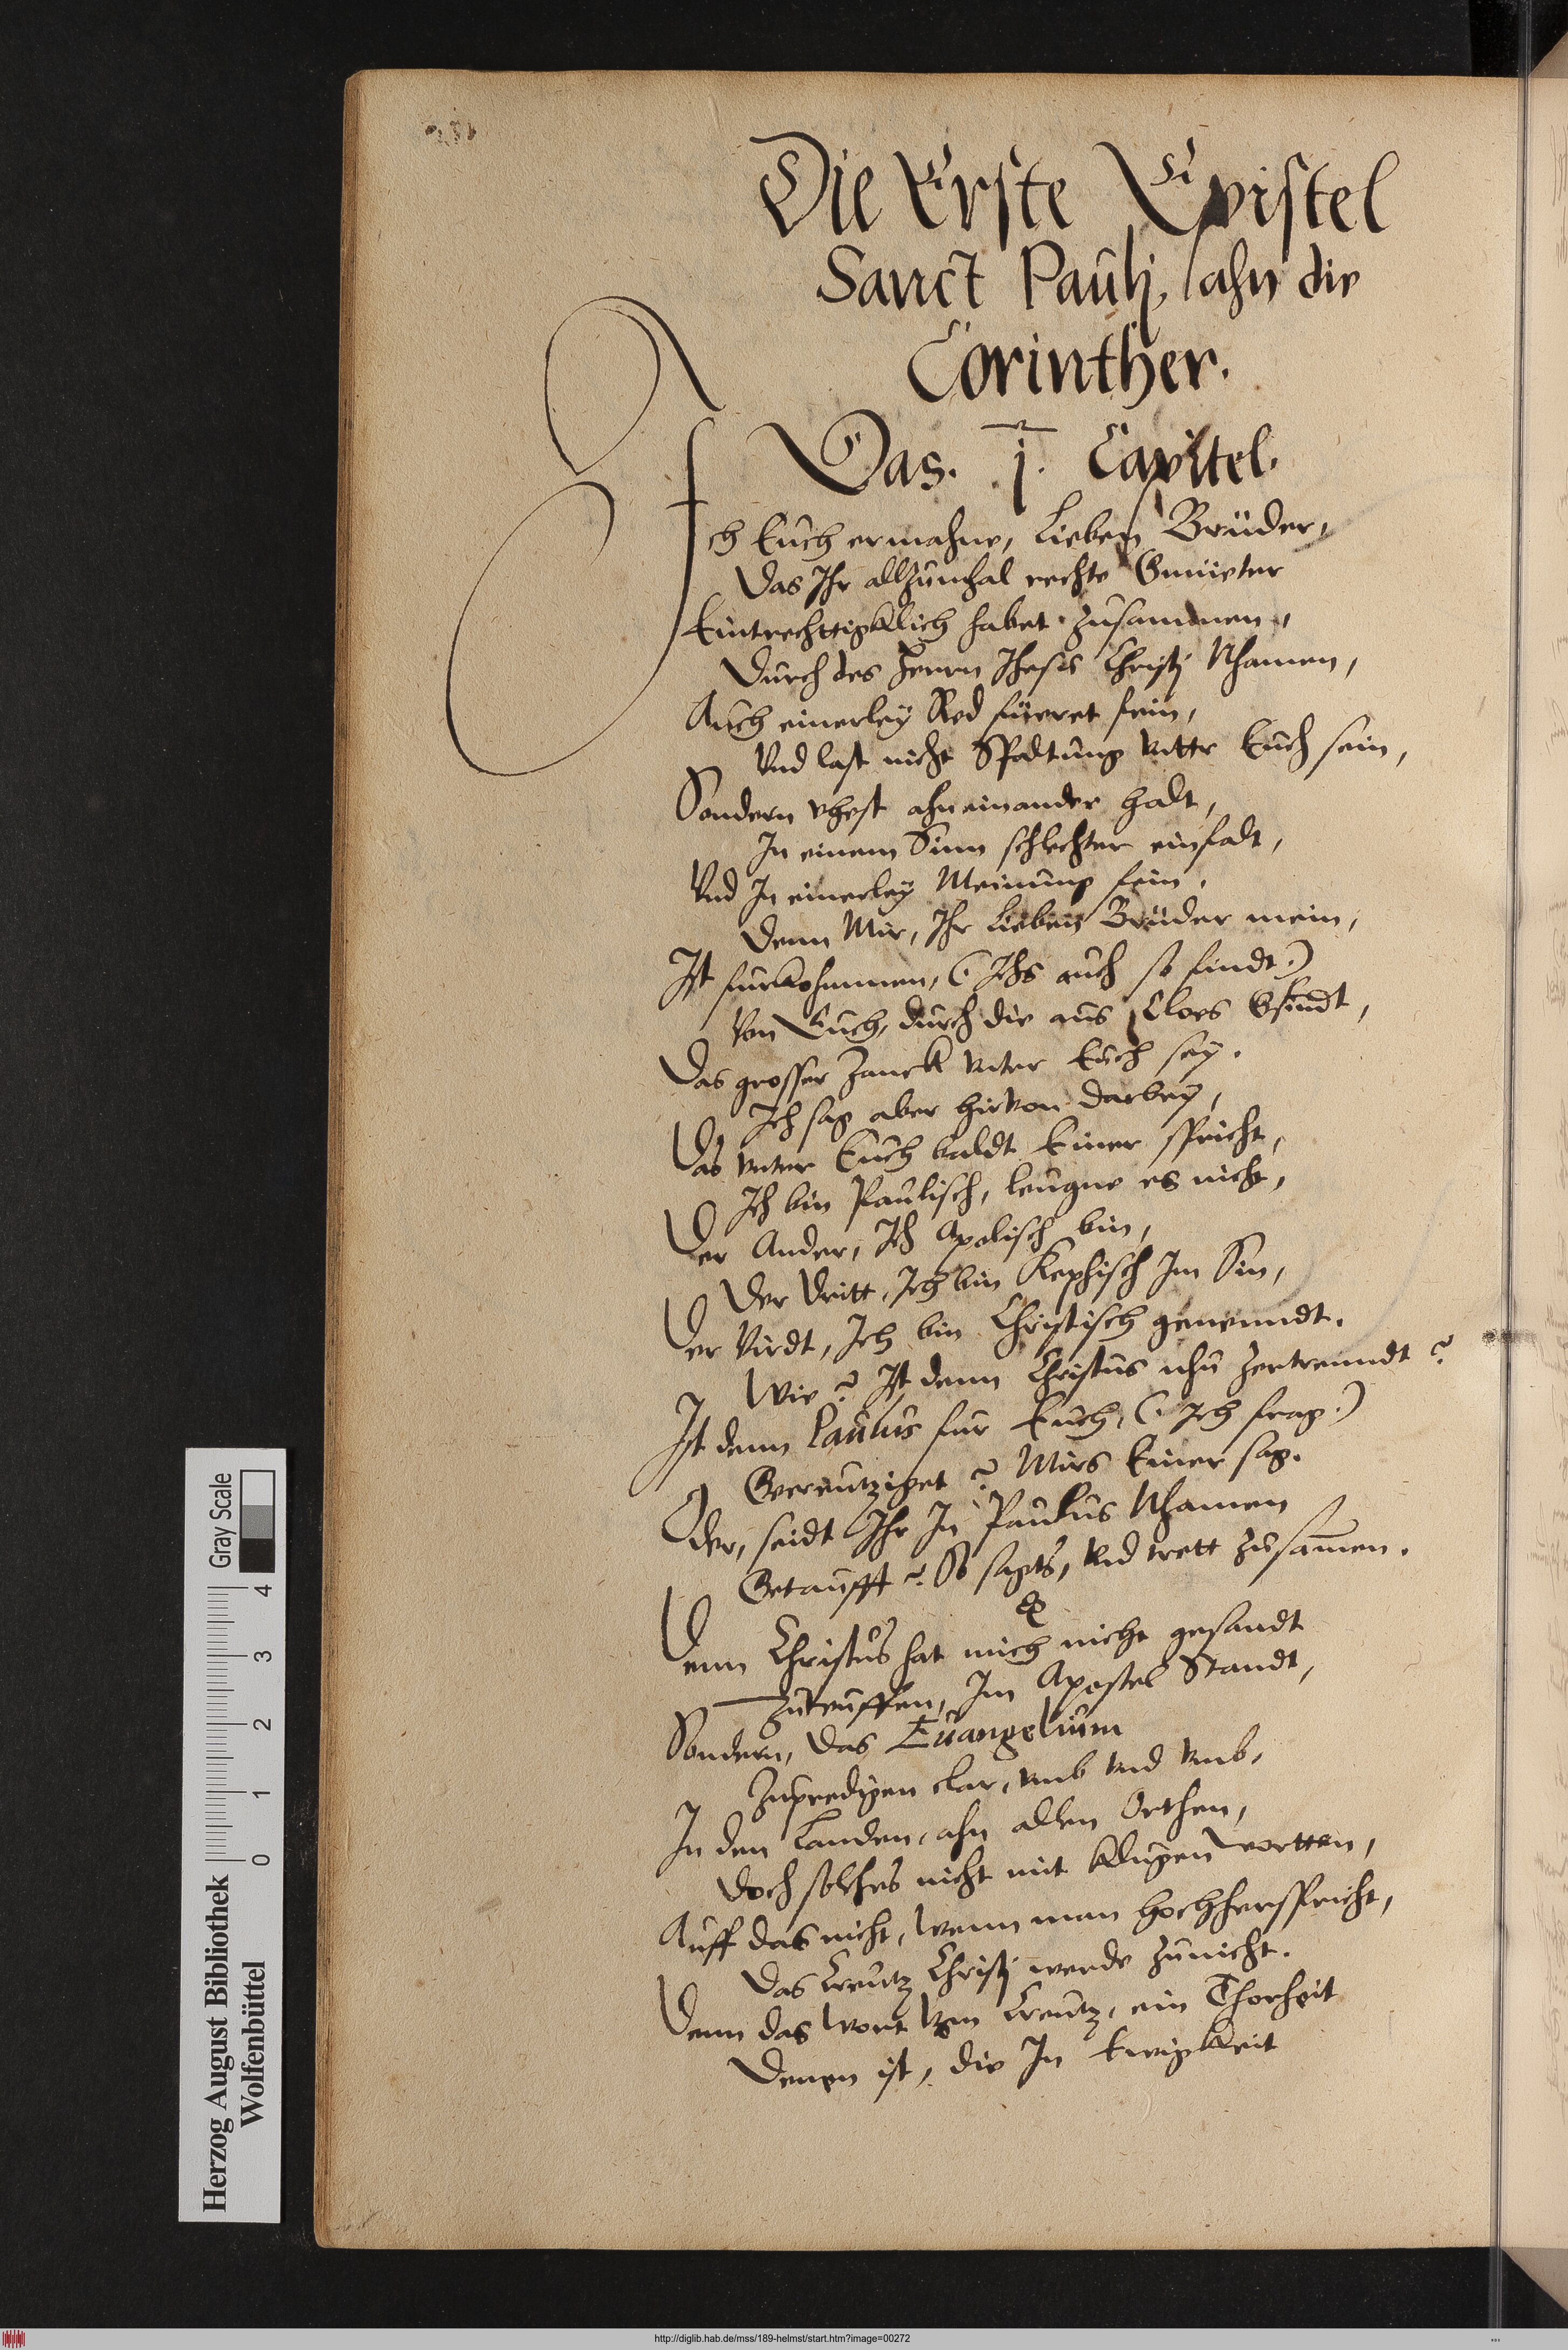 Die Erste Epistel
Sanct Pauli, ahn die
Corinther.
Das. 1. Capitel.
Ich Euch ermahne, Lieben Brüder,
Das Ihr allzumhal rechte Gmüeter
Eintrechttigklich habet zusammen,
Durch des Herrn Jhesus Christj Nhamen,
Auch einerley Red füeret fein,
Vnd last nicht Spaltung vntter Euch sein,
Sondern vhest ahneinander halt,
In einem Sinn schlechter einfalt,
Vnd In einerley Meinung fein,
Denn Mir, Ihr Lieben Brüder mein,
Ist furkohmmen, (Ichs auch so findt.)
Von Euch, durch die aus Cloes Gsindt,
Das grosser Zanck vnter Euch sey.
Ich sag aber hirvon darbey,
Das vnter Euch baldt Einer spricht,
Ich bin Paulisch, leugne es nicht,
Der Ander, Ich Apolisch bin,
Der Dritt, Ich bin Kephisch Im Sin,
Der Virdt, Ich bin Christisch genenndt.
Wie? Ist denn Christus nhu zertrenndt?
Ist denn Paulus fur Euch, (Ich frag.)
Gecreutziget? Mirs Einer sag.
Oder, seidt Ihr In Paulus Nhamen
Getaufft? So sagts, Vnd trett zusam̄en.
Denn Christus hat mich nicht gesandt
Zuteuffen, Im Apostel Standt,
Sondern, das Euangelium
Zupredigen clar, vmb vnd vmb,
In den Landen, ahn allen Orthen,
Doch solches nicht mit klugen wortten,
Auff das nicht, wenn man hochherspricht,
Das Creutz Christj werde zunicht.
Denn das Wort Vom Creutz, ein Thorheit
Denen ist, die In Ewigkeit
Herzog August Bibliothek
Wolfenbüttel
Gray Scale
0 1 2 3 4
http://diglib.hab.de/mss/189-helmst/start.htm?image=00272